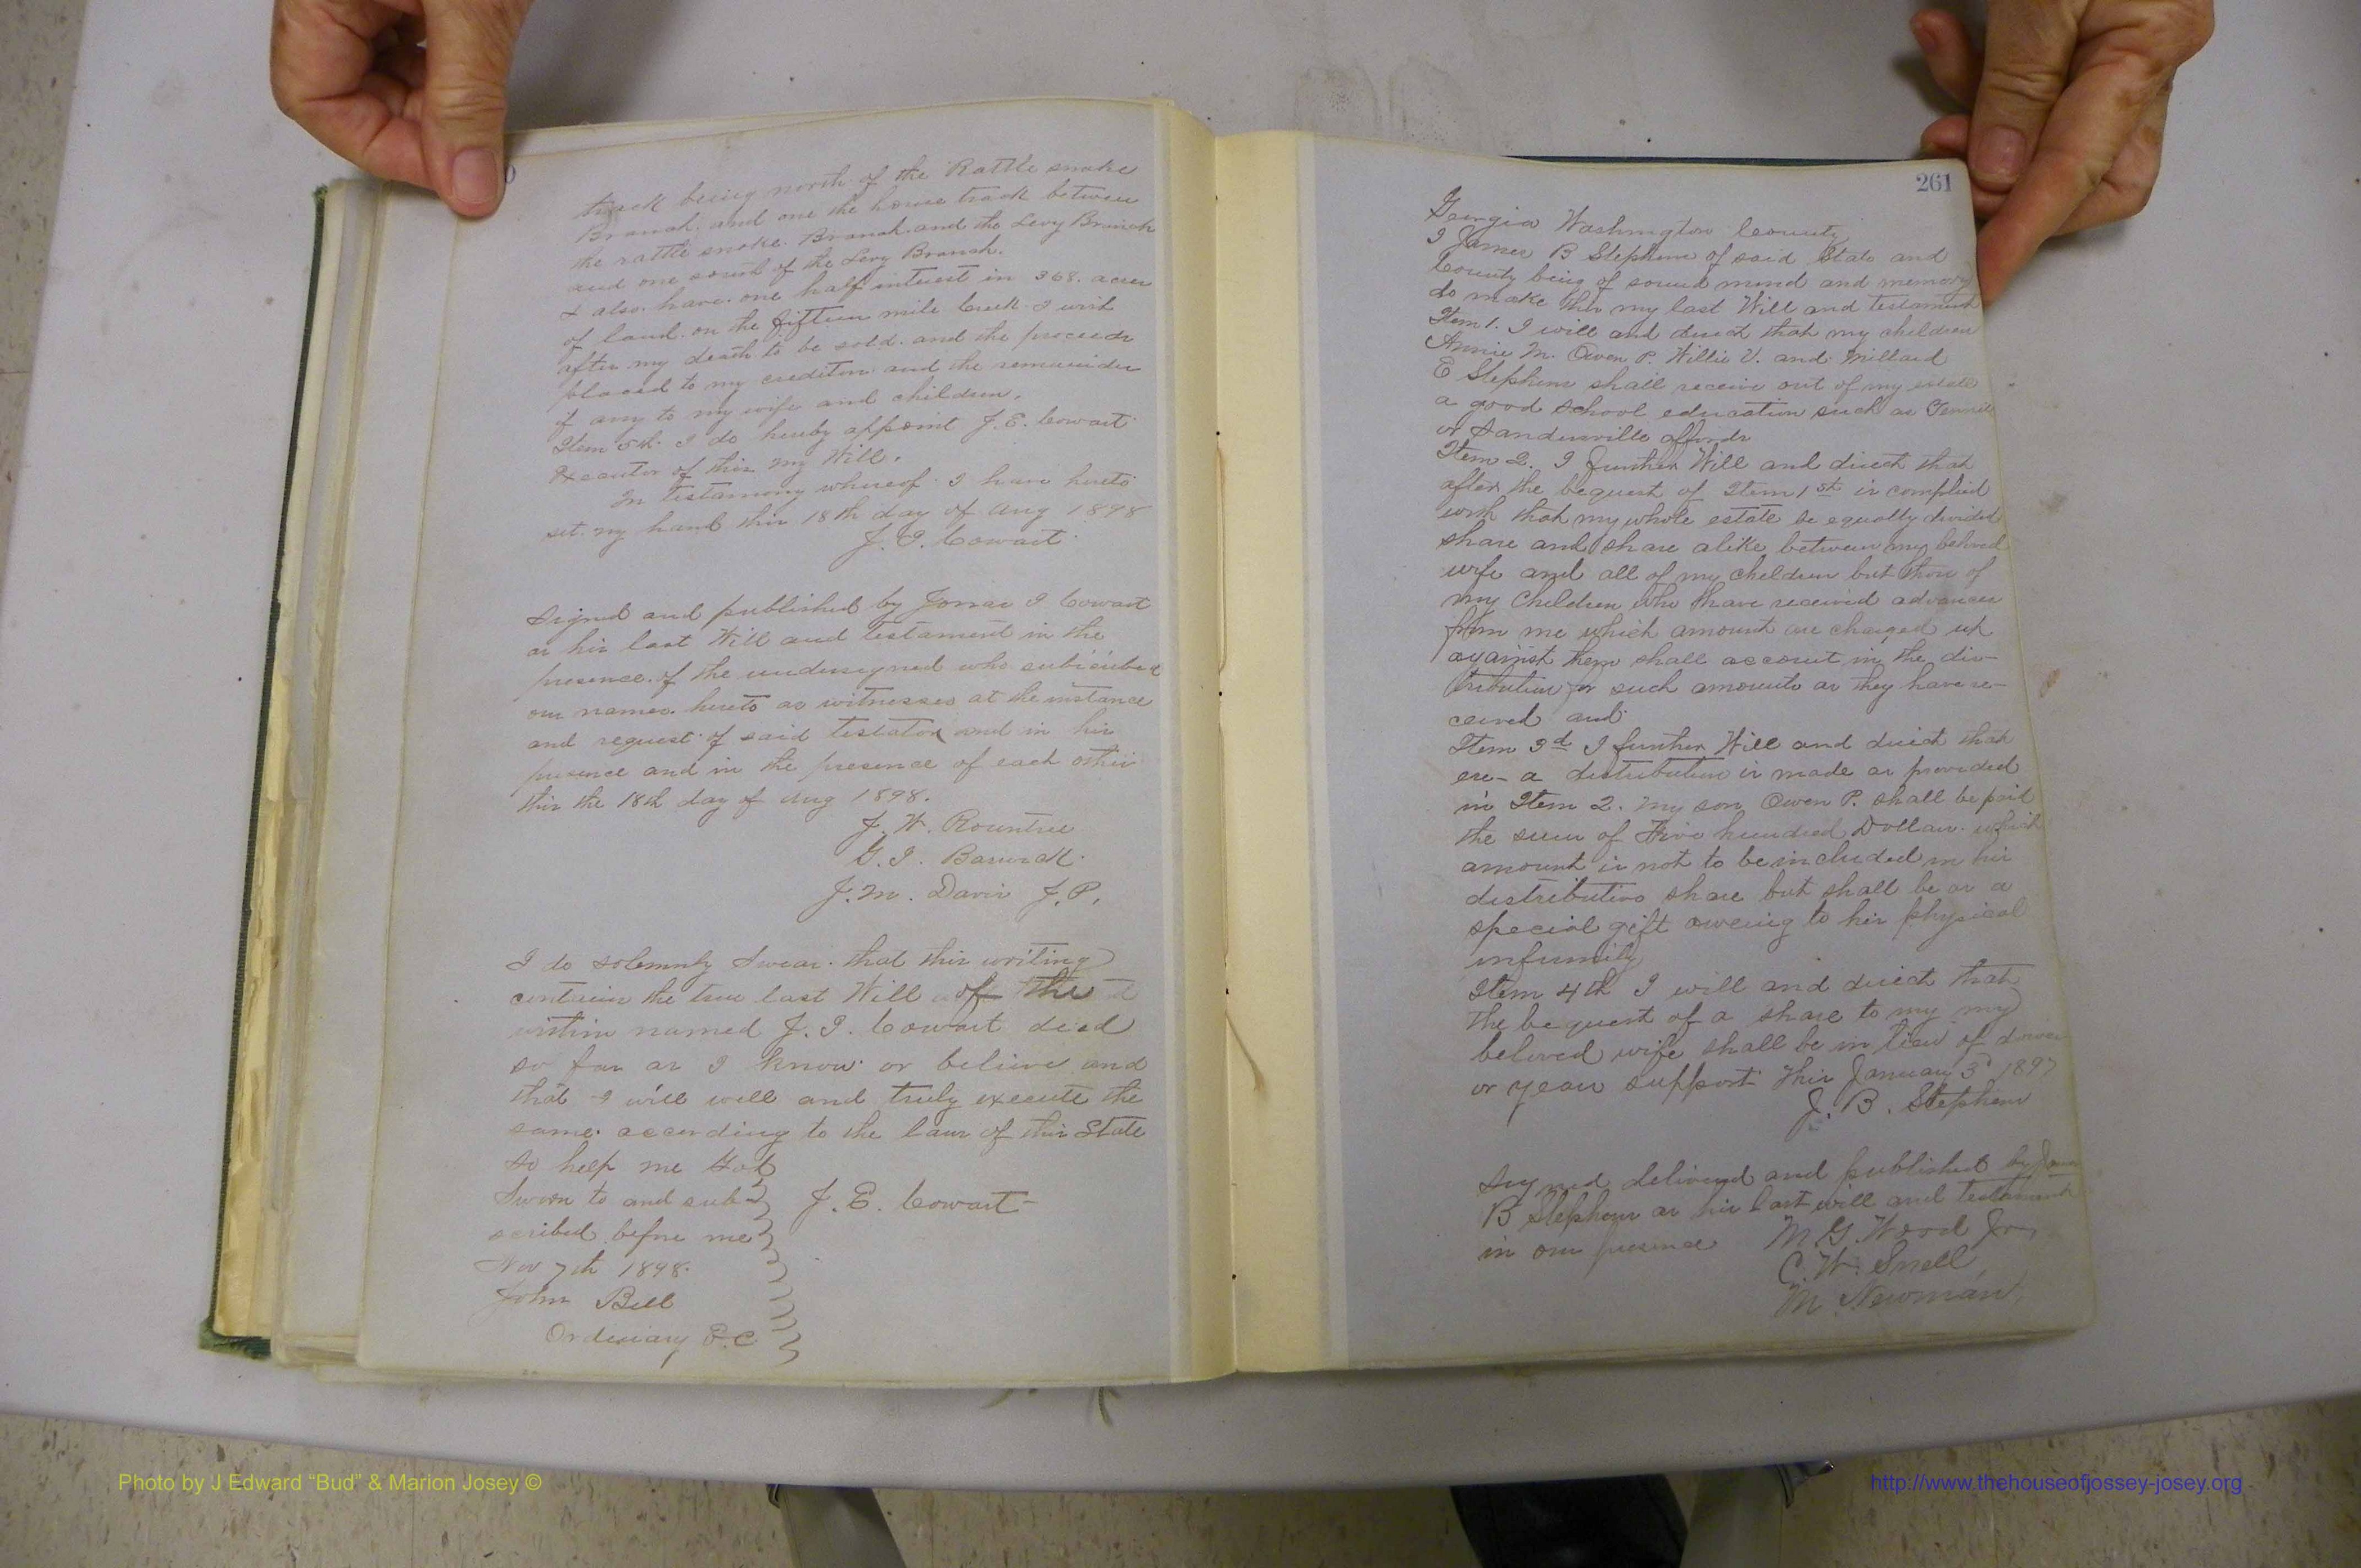 track being north of the Rattle snake
Branch. and one the house track between
the rattle snake. Branch. and the Levy Branch
and one south of the Levy Branch.
I also. have. one half intrest in 368. acres
of land. on the fifteen mile Creek I wish
after my death to be sold. and the proceeds
placed to my creditors and the remainder
if any to my wife and children.
Item 5th. I do hereby appoint J. E. Cowart
Executor of this my Will.
In testamony whereof I have hereto
set my hand this 18th day of Aug 1898
J. I. Cowart
Signed and published by Jonas I Cowart
as his last Will and testament in the
presence. of the undersigned who subscribed
our names. hereto as witnesses at the instance
and request of said testator and in his
presence and in the presence of each other
this the 18th day of Aug 1898.
J. W. Rountree
G. I. Barwick
J. M. Davis J. P.
I do solemnly Swear. that this writing
contains the true last Will of the
within named J. I. Cowart decd
so far as I know or believe and
that I will well and truly execute the
same. according to the laws of this State
So help me God
Sworn to and sub-
J. E. Cowart
scribed before me
Nov 7th 1898.
John Bell
Ordinary E. C
261
Georgia Washington County
I James B Stephens of said State and
County being of sound mind and memory
do make this my last Will and testament
Item 1. I will and direct that my children
Annie M. Owen P. Willie V. and Millard
E Stephens shall receive out of my estate
a good school education such as Tennille
or Sandersville affords
Item 2. I further Will and direct that
after the bequest of Item 1st is complied
with that my whole estate be equally divided
share and share alike between my beloved
wife and all of my children but those of
my Children who have received advances
from me which amount are charged up
against them shall account in the dis-
tribution for such amounts as they have re-
ceived and
Item 3d I further Will and direct that
ere a distribution is made as provided
in Item 2. my son Owen P. shall be paid
the sum of Five hundred Dollars. which
amount is not to be included in his
distributive share but shall be as a
special gift oweing to his physical
infirmity
Item 4th I will and direct that
the bequest of a share to my my
beloved wife shall be in lieu of dower
or years support this January 3d 1897
J. B. Stephens
Signed delivered and published by James
B Stephens as his last will and testament
in our presence M. G. Wood Jr,
C. W. Snell
M. Newman,
Photo by J Edward “Bud” & Marion Josey ©
http://www.thehouseofjossey-josey.org